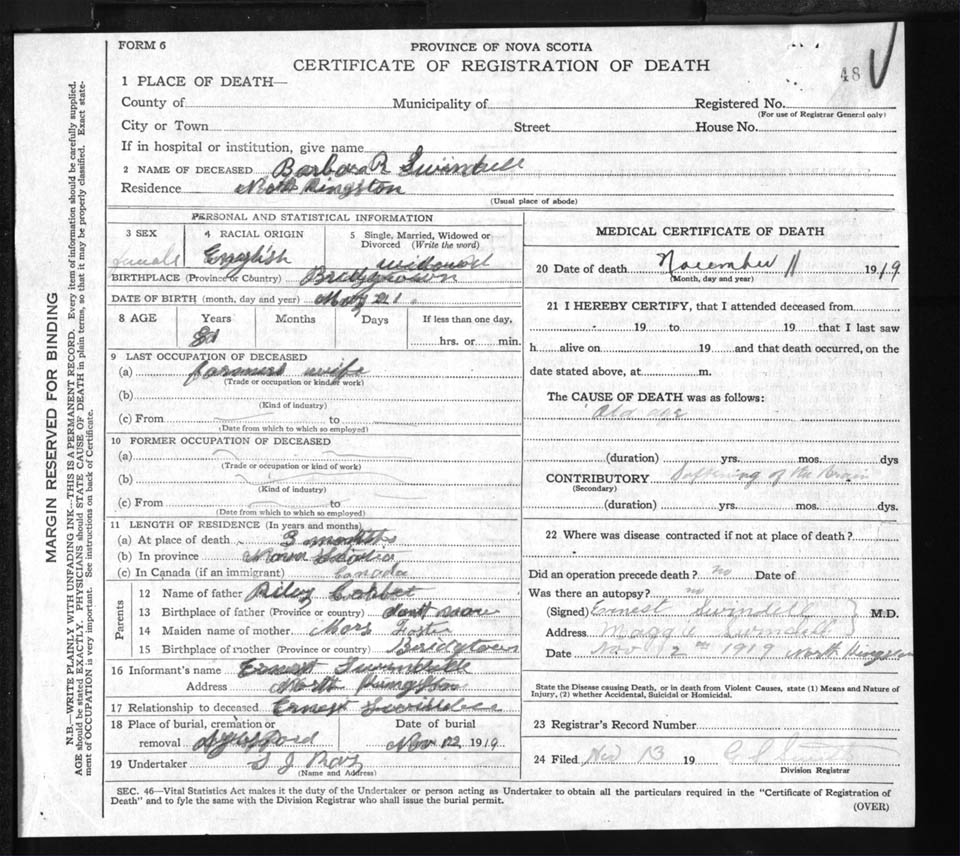 FORM 6
PROVINCE OF NOVA SCOTIA
CERTIFICATE OF REGISTRATION OF DEATH
48
1 PLACE OF DEATH—
County of Municipality of Registered No.
(For use of Registrar General only)
City or Town Street House No.
If in hospital or institution, give name
2 NAME OF DECEASED Barbara R Swindell
Residence North Kingston
(Usual place of abode)
PERSONAL AND STATISTICAL INFORMATION
3 SEX 4 RACIAL ORIGIN 5 Single, Married, Widowed or Divorced (Write the word)
female English widowed
BIRTHPLACE (Province or Country) Bridgtown
DATE OF BIRTH (month, day and year) May 21
8 AGE Years Months Days If less than one day,
hrs. or min.
9 LAST OCCUPATION OF DECEASED
(a) farmers wife
(Trade or occupation or kind or work)
(b)
(Kind of industry)
(c) From to
(Date from which to which so employed)
10 FORMER OCCUPATION OF DECEASED
(a)
(Trade or occupation or kind of work)
(b)
(Kind of industry)
(c) From to
(Date from which to which so employed)
11 LENGTH OF RESIDENCE (In years and months)
(a) At place of death 3 months
(b) In province Nova Scotia
(c) In Canada (if an immigrant) Canada
Parents
12 Name of father Riley
13 Birthplace of father (Province or country) dont now
14 Maiden name of mother Mary
15 Birthplace of mother (Province or country) Bridgtown
16 Informant's name Ernest Swindell
Address North Kingston
17 Relationship to deceased Ernest Swindell
18 Place of burial, cremation or removal Date of burial
Nov 12 1919
19 Undertaker S J
(Name and Address)
MEDICAL CERTIFICATE OF DEATH
20 Date of death November 11 1919
(Month, day and year)
21 I HEREBY CERTIFY, that I attended deceased from
19 to 19 that I last saw
h alive on 19 and that death occurred, on the
date stated above, at m.
The CAUSE OF DEATH was as follows:
Old age
(duration) yrs. mos. dys
CONTRIBUTORY Softening of the Brain
(Secondary)
(duration) yrs. mos. dys.
22 Where was disease contracted if not at place of death?
Did an operation precede death? no Date of
Was there an autopsy? no
(Signed) Ernest Swindell M.D.
Address Maggie Swindell
Date Nov 12 1919 North Kingston
State the Disease causing Death, or in death from Violent Causes, state (1) Means and Nature of
Injury, (2) whether Accidental, Suicidal or Homicidal.
23 Registrar's Record Number
24 Filed Nov 13 19
Division Registrar
SEC. 46—Vital Statistics Act makes it the duty of the Undertaker or person acting as Undertaker to obtain all the particulars required in the "Certificate of Registration of
Death" and to fyle the same with the Division Registrar who shall issue the burial permit.
(OVER)
MARGIN RESERVED FOR BINDING
N.B.—WRITE PLAINLY WITH UNFADING INK—THIS IS A PERMANENT RECORD. Every item of information should be carefully supplied.
AGE should be stated EXACTLY. PHYSICIANS should STATE CAUSE OF DEATH in plain terms, so that it may be properly classified. Exact state-
ment of OCCUPATION is very important. See instructions on back of Certificate.